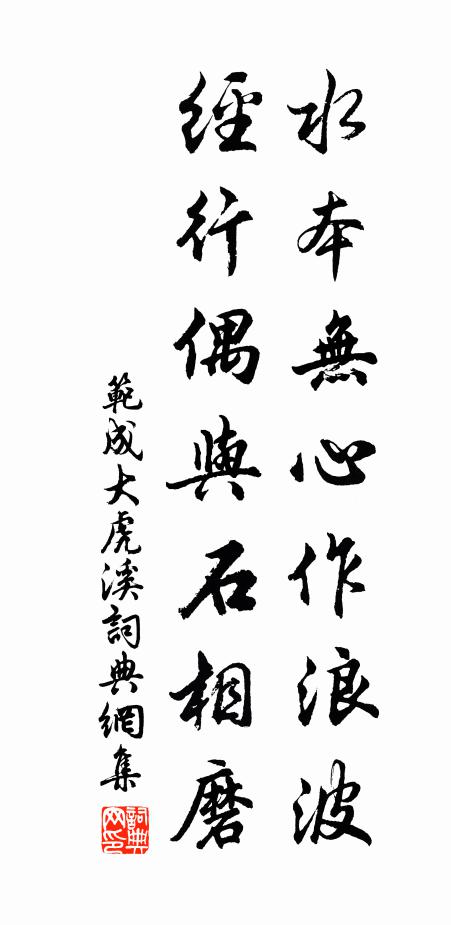 水本無心作浪波
經行偶與石相磨
範成大虎溪詞典網集
詞典網印